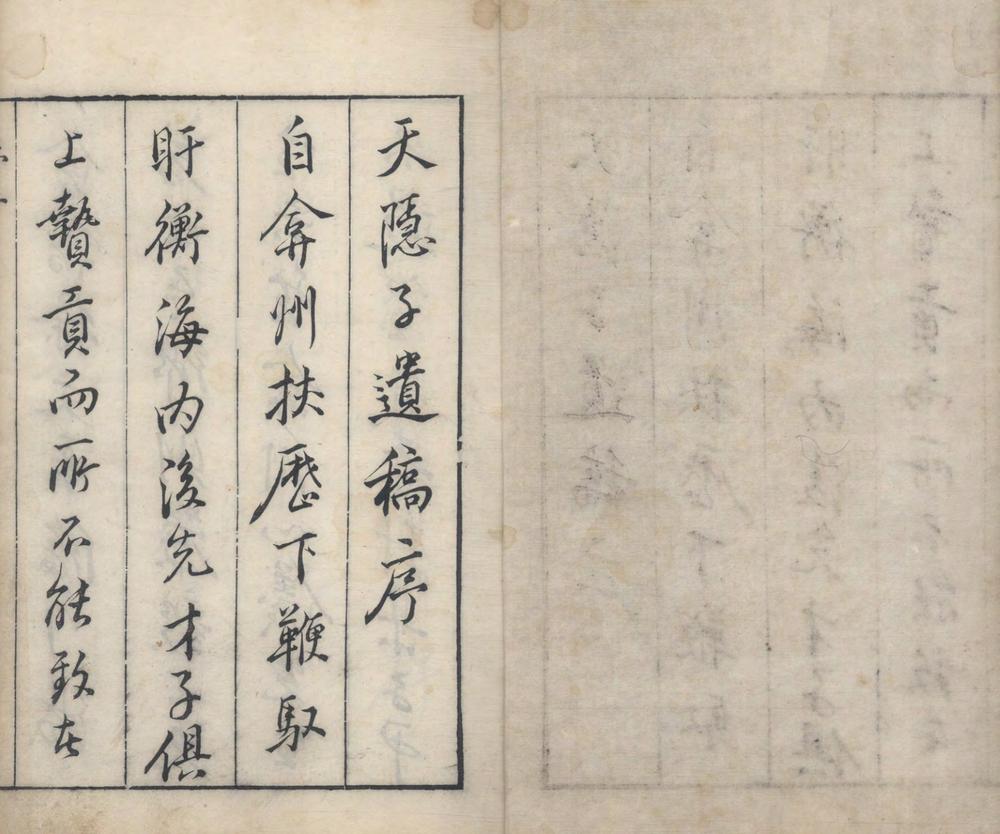 天隱子遺稿序
自弇州扶歷下鞭馭
盱衡海內後先才子俱
上贄貢而所不能致者